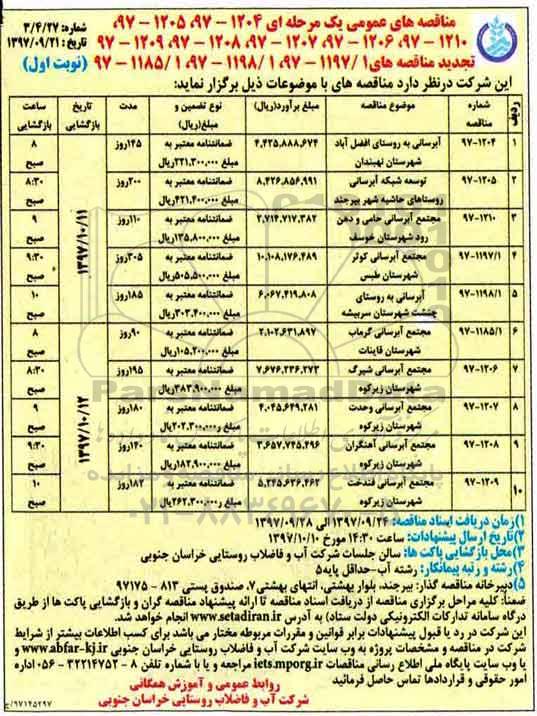 مناقصه های عمومی یک مرحله ای ۱۲۰۴ - ۹۷، ۱۲۰۵ - ۹۷،
۱۲۱۰ - ۹۷، ۱۲۰۶ - ۹۷، ۱۲۰۷ - ۹۷، ۱۲۰۸ - ۹۷، ۱۲۰۹ - ۹۷
تجدید مناقصه های ۱۱۹۷/۱ - ۹۷، ۱۱۹۸/۱ - ۹۷، ۱۱۸۵/۱ - ۹۷ (نوبت اول)
شماره: ۳/۴/۲۷
تاریخ : ۱۳۹۷/۰۹/۲۱
این شرکت درنظر دارد مناقصه های با موضوعات ذیل برگزار نماید:
ردیف شماره مناقصه موضوع مناقصه مبلغ برآورد(ریال) نوع تضمین و مبلغ(ریال) مدت تاریخ بازگشایی ساعت بازگشایی
۱ ۹۷-۱۲۰۴ آبرسانی به روستای افضل آباد شهرستان نهبندان ۴,۴۲۵,۸۸۸,۶۷۴ ضمانتنامه معتبر به مبلغ ۲۲۱,۳۰۰,۰۰۰ریال ۱۴۵روز ۱۳۹۷/۱۰/۱۱ ۸ صبح
۲ ۹۷-۱۲۰۵ توسعه شبکه آبرسانی روستاهای حاشیه شهر بیرجند ۸,۴۲۶,۸۵۶,۹۹۱ ضمانتنامه معتبر به مبلغ ۴۲۱,۴۰۰,۰۰۰ریال ۲۰۰روز ۸:۳۰ صبح
۳ ۹۷-۱۲۱۰ مجتمع آبرسانی حامی و دهن رود شهرستان خوسف ۲,۷۱۴,۷۱۷,۳۸۲ ضمانتنامه معتبر به مبلغ ۱۳۵,۸۰۰,۰۰۰ریال ۱۱۰روز ۹ صبح
۴ ۹۷-۱۱۹۷/۱ مجتمع آبرسانی کوثر شهرستان طبس ۱۰,۱۰۸,۱۷۶,۴۸۹ ضمانتنامه معتبر به مبلغ ۵۰۵,۵۰۰,۰۰۰ریال ۳۰۵روز ۹:۳۰ صبح
۵ ۹۷-۱۱۹۸/۱ آبرسانی به روستای چنشت شهرستان سربیشه ۶,۰۶۷,۴۱۹,۸۰۸ ضمانتنامه معتبر به مبلغ ۳۰۳,۴۰۰,۰۰۰ریال ۱۸۵روز ۱۰ صبح
۶ ۹۷-۱۱۸۵/۱ مجتمع آبرسانی گرماب شهرستان قاینات ۲,۱۰۲,۶۳۱,۸۹۷ ضمانتنامه معتبر به مبلغ ۱۰۵,۲۰۰,۰۰۰ریال ۹۰روز ۱۳۹۷/۱۰/۱۲ ۸ صبح
۷ ۹۷-۱۲۰۶ مجتمع آبرسانی شیرگ شهرستان زیرکوه ۷,۶۷۶,۲۳۶,۲۷۳ ضمانتنامه معتبر به مبلغ ۳۸۳,۹۰۰,۰۰۰ریال ۱۹۵روز ۸:۳۰ صبح
۸ ۹۷-۱۲۰۷ مجتمع آبرسانی وحدت شهرستان زیرکوه ۴,۰۴۵,۶۴۹,۲۸۱ ضمانتنامه معتبر به مبلغ ۲۰۲,۳۰۰,۰۰۰ریال ۱۸۰روز ۹ صبح
۹ ۹۷-۱۲۰۸ مجتمع آبرسانی آهنگران شهرستان زیرکوه ۳,۶۵۷,۷۴۵,۴۹۶ ضمانتنامه معتبر به مبلغ ۱۸۲,۹۰۰,۰۰۰ریال ۱۴۰روز ۹:۳۰ صبح
۱۰ ۹۷-۱۲۰۹ مجتمع آبرسانی فندخت شهرستان زیرکوه ۵,۲۴۵,۶۳۶,۴۶۲ ضمانتنامه معتبر به مبلغ ۲۶۲,۳۰۰,۰۰۰ریال ۱۸۲روز ۱۰ صبح
۱)زمان دریافت اسناد مناقصه: ۱۳۹۷/۰۹/۲۴ الی ۱۳۹۷/۰۹/۲۸
۲)تاریخ ارسال پیشنهادات: ساعت ۱۴:۳۰ مورخ ۱۳۹۷/۱۰/۱۰
۳)محل بازگشایی پاکت ها: سالن جلسات شرکت آب و فاضلاب روستایی خراسان جنوبی
۴)رشته و رتبه پیمانکار: رشته آب-حداقل پایه۵
۵)دبیرخانه مناقصه گذار: بیرجند، بلوار بهشتی، انتهای بهشتی۷، صندوق پستی ۸۱۳ - ۹۷۱۷۵
ضمناً: کلیه مراحل برگزاری مناقصه از دریافت اسناد مناقصه تا ارائه پیشنهاد مناقصه گران و بازگشایی پاکت ها از طریق
درگاه سامانه تدارکات الکترونیکی دولت ستاد) به آدرس www.setadiran.ir انجام خواهد شد.
این شرکت در رد یا قبول پیشنهادات برابر قوانین و مقررات مربوطه مختار می باشد برای کسب اطلاعات بیشتر از شرایط
شرکت در مناقصه و مشخصات پروژه به وب سایت شرکت آب و فاضلاب روستایی خراسان جنوبی www.abfar-kj.ir و
یا وب سایت پایگاه ملی اطلاع رسانی مناقصات iets.mporg.ir مراجعه و یا با شماره تلفن ۸ - ۳۲۲۱۴۷۵۲ - ۰۵۶ اداره
امور حقوقی و قراردادها تماس حاصل فرمائید
روابط عمومی و آموزش همگانی
شرکت آب و فاضلاب روستایی خراسان جنوبی
۹۷۱۲۵۲۹۷/خ
ParsNamadData
۰۲۱-۸۸۳۴۹۶۷۰